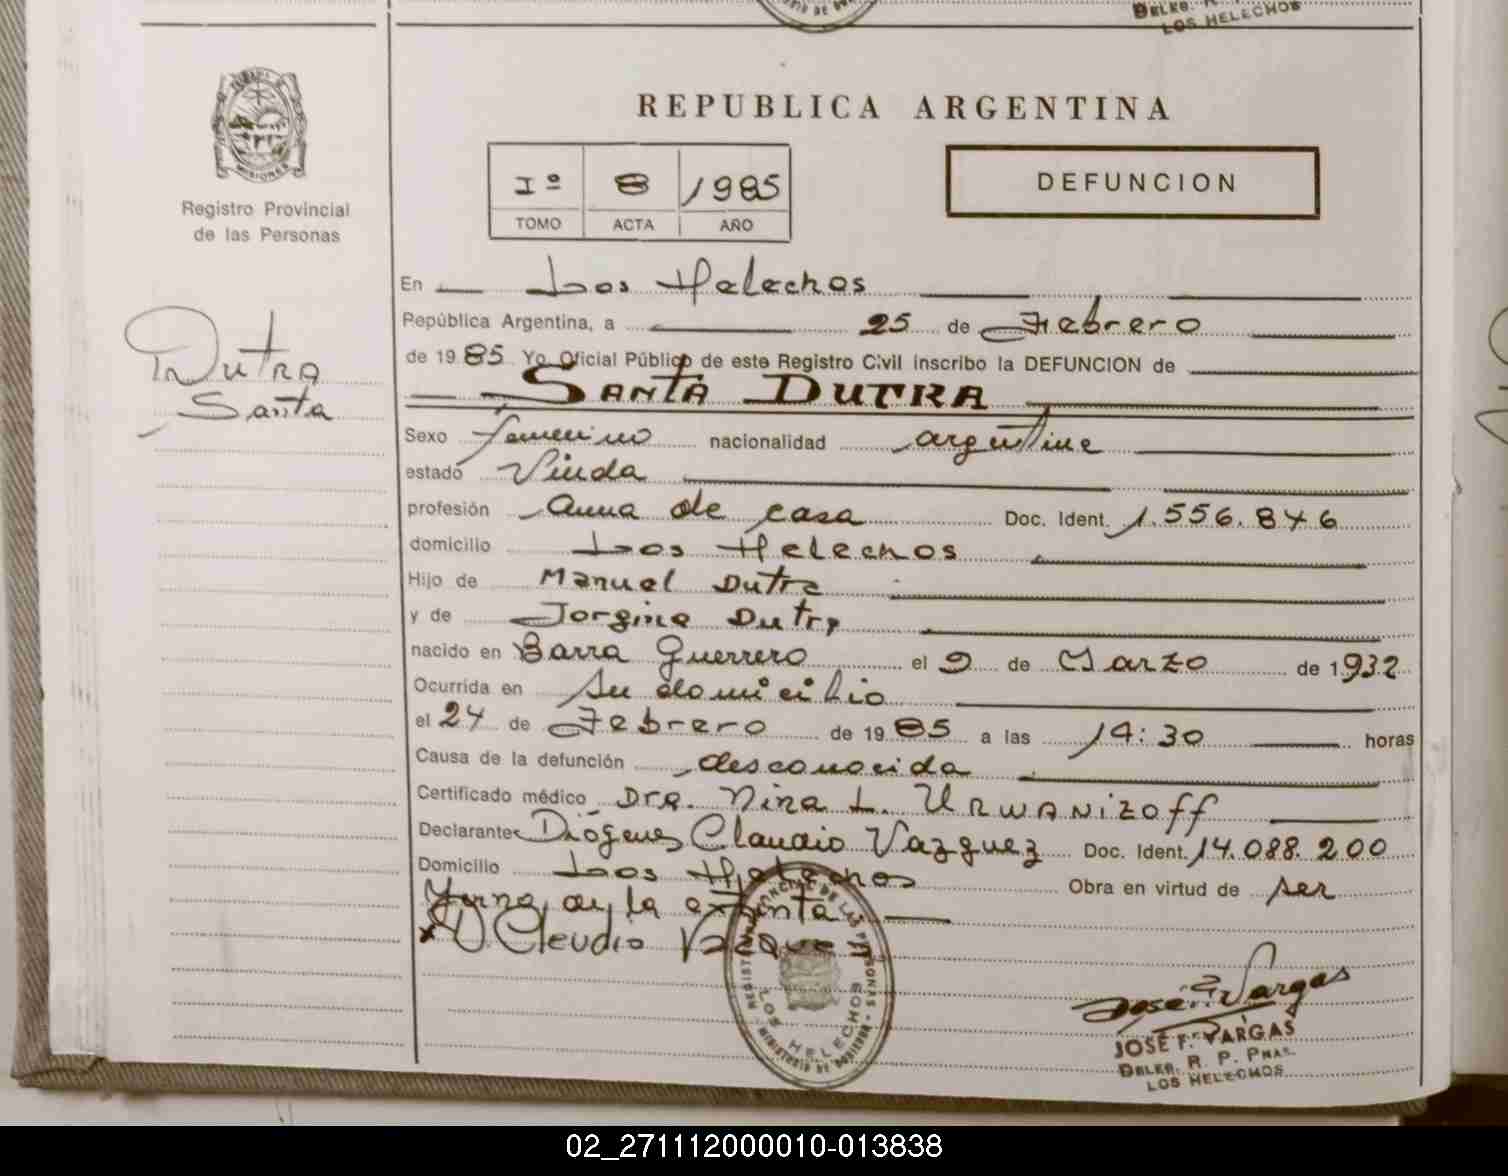 DELEG. R.
LOS HELECHOS
MISIONES
Registro Provincial
de las Personas
Dutra
Santa
REPUBLICA ARGENTINA
Iº 8 1985
TOMO ACTA AÑO
DEFUNCION
En Los Helechos
República Argentina, a 25 de Febrero
de 1985 Yo Oficial Público de este Registro Civil inscribo la DEFUNCION de
SANTA DUTRA
Sexo femenino nacionalidad argentina
estado Viuda
profesión Ama de casa Doc. Ident. 1.556.846
domicilio Los Helechos
Hijo de Manuel Dutra
y de Jorgina Dutra
nacido en Barra Guerrero el 9 de Marzo de 1932
Ocurrida en su domicilio
el 24 de Febrero de 1985 a las 14:30 horas
Causa de la defunción desconocida
Certificado médico Dra. Nina L. Urwanizoff
Declarante Diógenes Claudio Vazquez Doc. Ident. 14.088.200
Domicilio Los Helechos Obra en virtud de ser
Yerno de la extinta
x D Claudio Vazquez
REGISTRO PROVINCIAL DE LAS PERSONAS
LOS HELECHOS
MINISTERIO DE GOBIERNO
José F. Vargas
JOSÉ F. VARGAS
DELEG. R. P. PNAS.
LOS HELECHOS
02_271112000010-013838